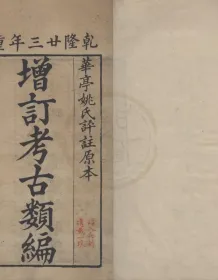 乾隆廿三年重
華亭姚氏評註原本
增訂考古類編